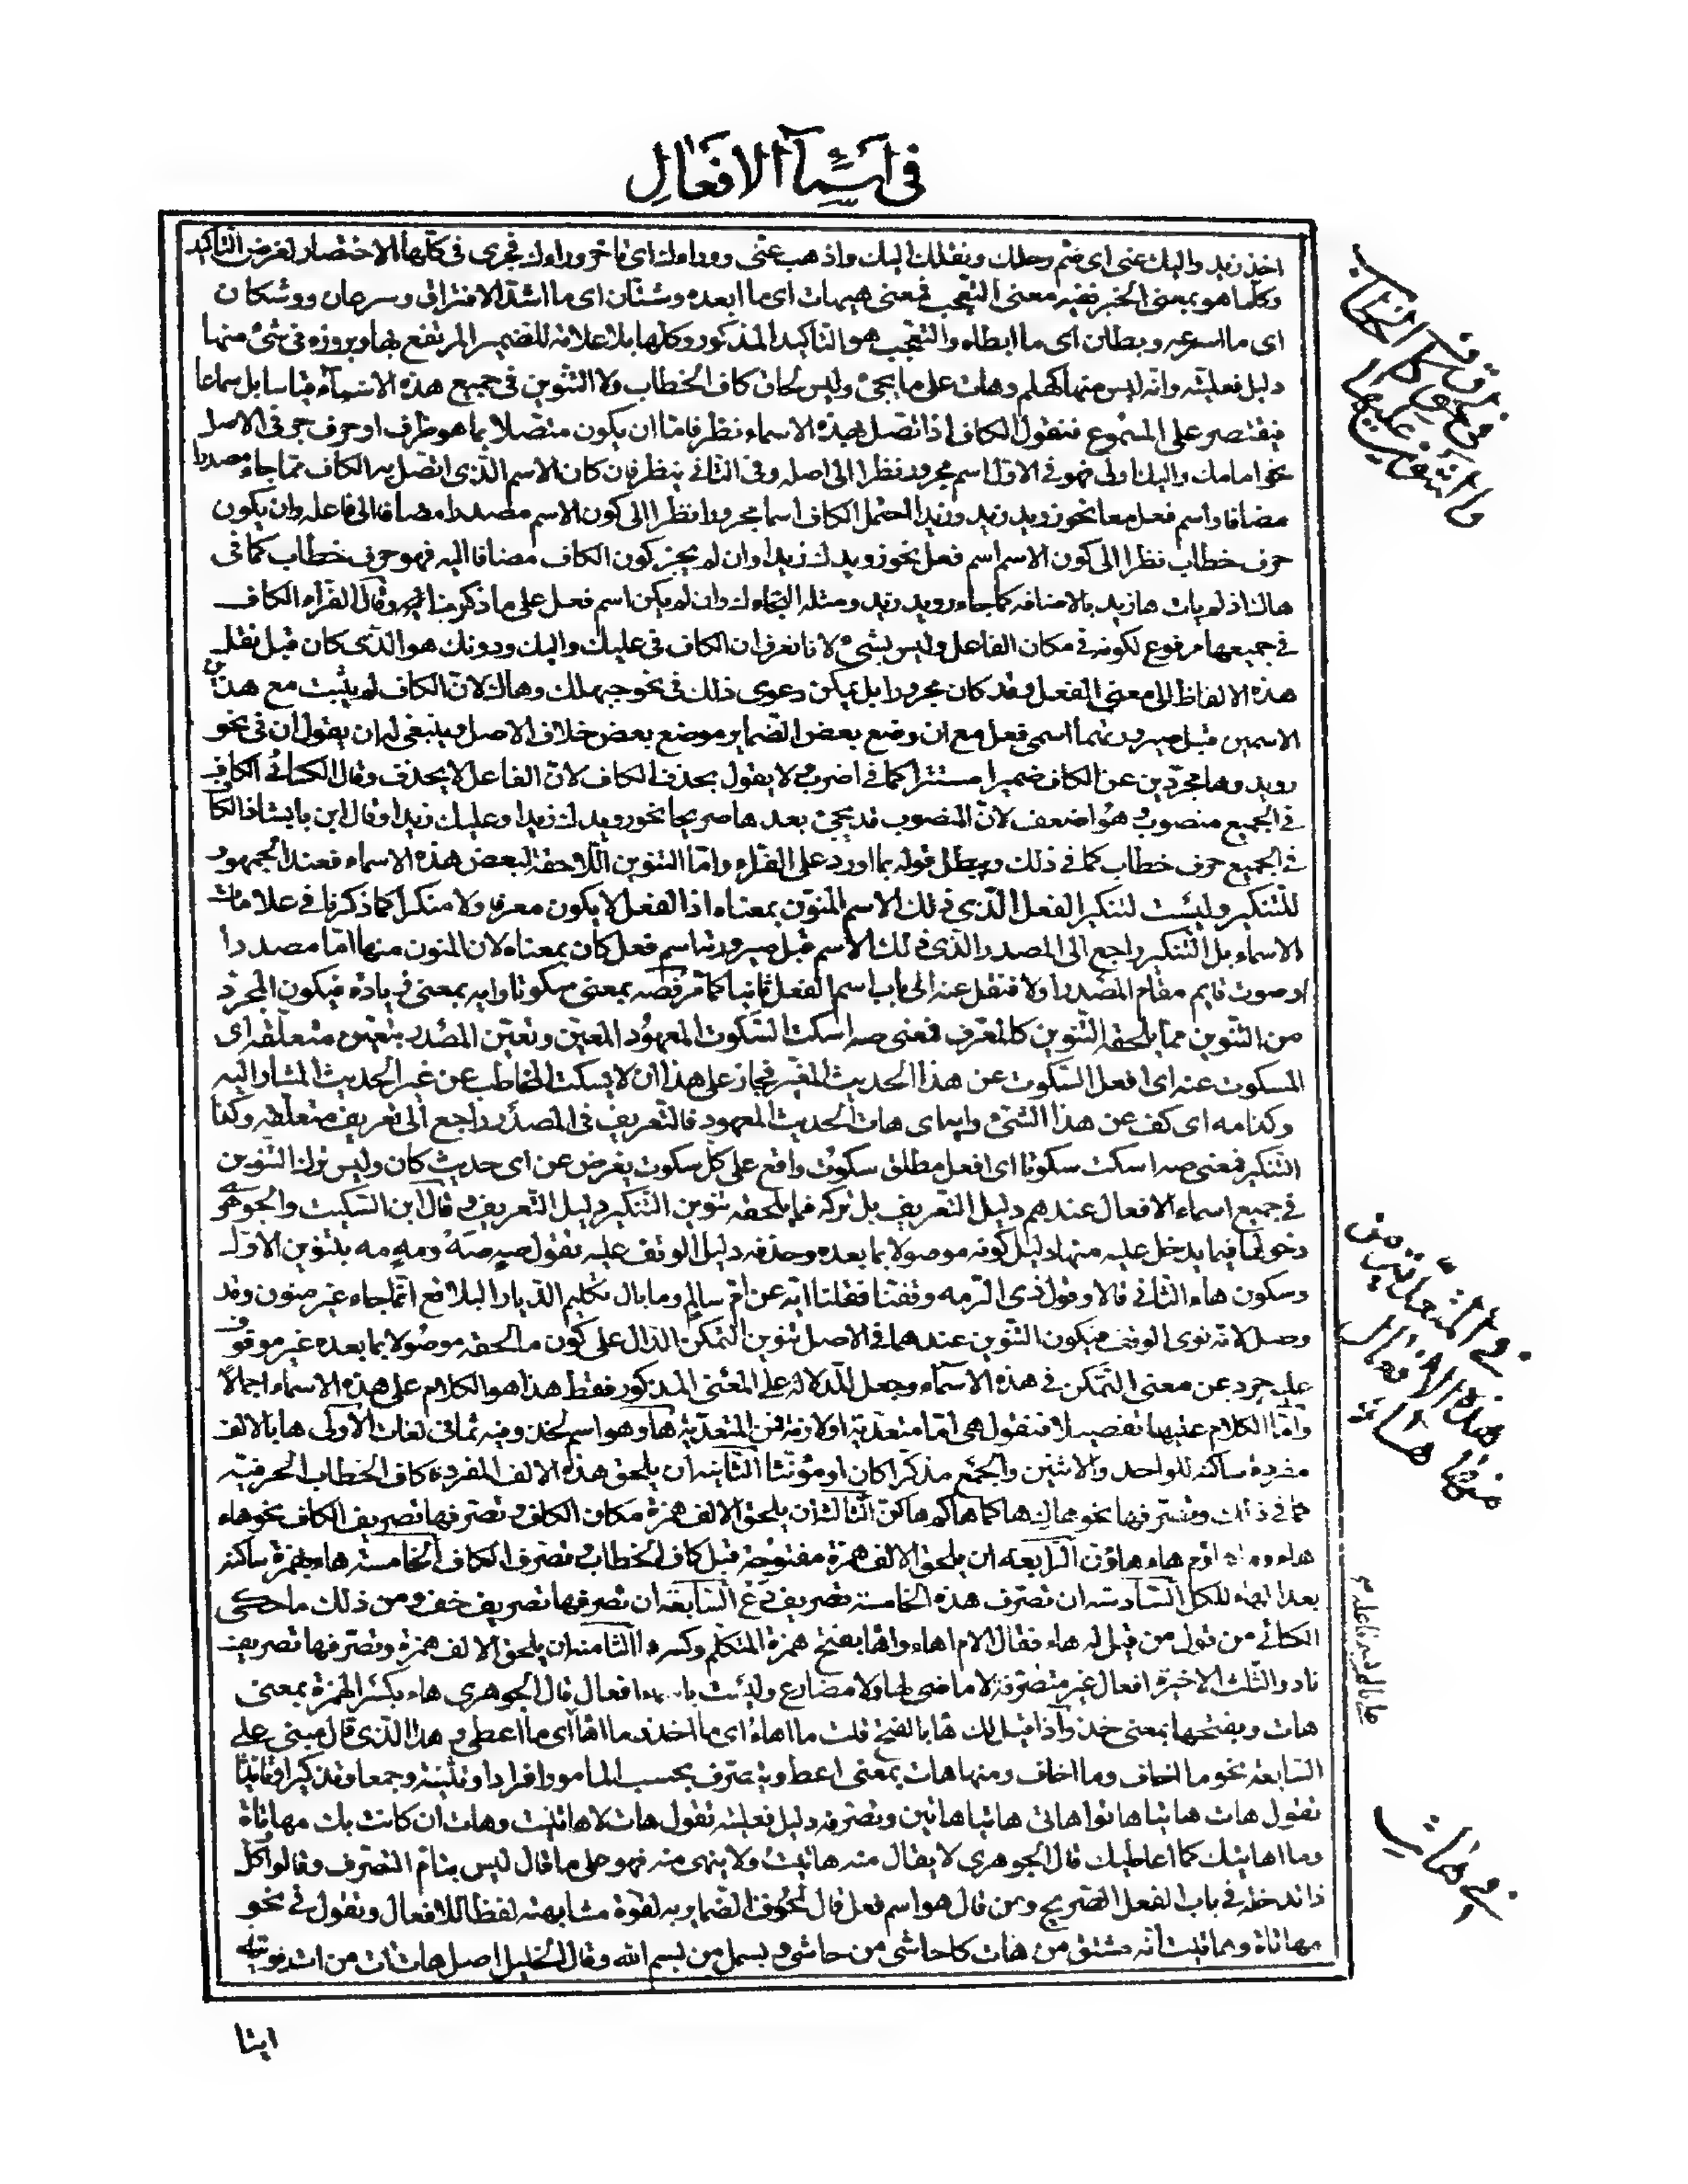 في اسمآء الافعال
اخذ زيد واليك عنى اى ضم رحلك وثقلك اليك واذهب عنى ووراءك اى تاخر وراءك فجرى فى كلها الاختصار لغرض التاكيد
وكلما هو بمعنى الخبر ففيه معنى التعجب فمعنى هيهات اى ما ابعده وشتان اى ما اشد الافتراق وسرعان ووشكان
اى ما اسرعه وبطان اى ما ابطاه والتعجب هو التاكيد المذكور وكلها بلا علامة للضمير المرتفع بها وبروزه فى شئ منها
دليل فعليته وانه ليس منها كهلم وهات على ما يجئ وليس لحاق كاف الخطاب ولا التنوين فى جميع هذه الاسمآء قياسا بل سماعا
فيقتصر على المسموع فنقول الكاف اذا اتصل بهذه الاسماء نظر فاما ان يكون متصلا بما هو ظرف او حرف جر فى الاصل
نحو امامك واليك اولى فهو فى الاول اسم مجرور نظرا الى اصله وفى الثانى ينظر فان كان الاسم الذى اتصل به الكاف مما جاء مصدرا
مضافا واسم فعل معا نحو رويد زيد وزيدا احتمل الكاف اسما مجرورا نظرا الى كون الاسم مصدرا مضافا الى فاعله وان يكون
حرف خطاب نظرا الى كون الاسم اسم فعل نحو رويدك زيدا وان لم يجز كون الكاف مضافا اليه فهو حرف خطاب كما فى
هاك اذ لم يات ها زيد بالاضافه كما جاء رويد زيد ومثله النجاءك وان لم يكن اسم فعل على ما ذكرنا وقال الفراء الكاف
فى جميعها مرفوع لكونه فى مكان الفاعل وليس بشئ لانا نعرف ان الكاف فى عليك واليك ودونك هو الذى كان قبل نقل
هذه الالفاظ الى معنى الفعل وقد كان مجرورا بل يمكن دعوى ذلك فى نحو حيهلك وهاك لان الكاف لم يثبت مع هذين
الاسمين قبل صيرورتهما اسمى فعل مع ان وضع بعض الضماير موضع بعض خلاف الاصل وينبغى له ان يقول ان فى نحو
رويد وها مجردين عن الكاف ضميرا مستترا كما فى اضرب ولا يقول بحذف الكاف لان الفاعل لا يحذف وقال الكسائى الكاف
فى الجميع منصوب وهو اضعف لان المنصوب قد يجئ بعدها صريحا نحو رويدك زيدا وعليك زيدا وقال ابن بابشاذ الكاف
فى الجميع حرف خطاب كما فى ذلك ويبطل قوله بما اورد على الفراء واما التنوين اللاحقة لبعض هذه الاسماء فعند الجمهور
للتنكير وليست لتنكير الفعل الذى ذلك الاسم المنون بمعناه اذ الفعل لا يكون معرفا ولا منكرا كما ذكرنا فى علامات
الاسماء بل التنكير راجع الى المصدر الذى ذلك الاسم قبل صيرورته اسم فعل كان بمعناه لان المنون منها اما مصدر
او صوت قايم مقام المصدر اولا فنقل عنه الى باب اسم الفعل ثانيا كما مر فصه بمعنى سكوتا وايه بمعنى زيادة فيكون المجرد
من التنوين مما يلحقه التنوين كالمعرف فمعنى صه اسكت السكوت المعهود المعين وتعين المصدر بتعين متعلقه اى
المسكوت عنه اى افعل السكوت عن هذا الحديث المعين فجاز على هذا ان لا يسكت المخاطب عن غير الحديث المشار اليه
وكذا مه اى كف عن هذا الشئ وايه اى هات الحديث المعهود فالتعريف فى المصدر راجع الى تعريف متعلقه وكذا
التنكير فمعنى صه اسكت سكوتا اى افعل مطلق سكوت واقع على كل سكوت يفرض عن اى حديث كان وليس ترك التنوين
فى جميع اسماء الافعال عندهم دليل التعريف بل تركه فيما يلحقه تنوين التنكير دليل التعريف وقال ابن السكيت والجوهرى
دخولها فيما يدخل عليه منها دليل كونه موصولا بما بعده وحذفه دليل الوقف عليه تقول صه صه ومه مه بتنوين الاول
وسكون هاء الثانى قالا وقول ذى الرمه وقفنا فقلنا ايه عن ام سالم وما بال تكليم الديار البلاقع انما جاء غير منون وقد
وصل لانه نوى الوقف فيكون التنوين عندهما فى الاصل تنوين التمكن الدال على كون ما لحقه موصولا بما بعده غير موقوف
عليه جرد عن معنى التمكن فى هذه الاسمآء وجعل للدلالة على المعنى المذكور فقط هذا هو الكلام على هذه الاسماء اجمالا
واما الكلام عليها تفصيلا فنقول هى اما متعدية او لازمة فمن المتعدية ها وهو اسم لخذ وفيه ثمانى لغات الاولى ها بالالف
مفردة ساكنه للواحد والاثنين والجمع مذكرا كان او مؤنثا الثانية ان يلحق هذه الالف المفردة كاف الخطاب الحرفيه
كما فى ذلك وتصرفها نحو هاك هاكما هاكم هاكن الثالثة ان يلحق الالف همزة مكان الكاف وتصرفها تصريف الكاف نحو هاء
هاؤما هاؤم هاء هاؤن الرابعه ان يلحق الالف همزة مفتوحة قبل كاف الخطاب وتصرف الكاف الخامسه هاء بهمزة ساكنه
بعد الهاء للكل السادسة ان تصرف هذه الخامسة تصريف دع السابعة ان تصرفها تصريف خف ومن ذلك ما حكى
الكسائى من قول من قيل له هاء فقال الام اهاء واهاء بفتح همزة المتكلم وكسرها الثامنه ان يلحق الالف همزة وتصرفها تصريف
ناد والثلث الاخيرة افعال غير متصرفة لا ماضى لها ولا مضارع وليست باسماء افعال قال الجوهرى هاء بكسر الهمزة بمعنى
هات وبفتحها بمعنى خذ واذا قيل لك هاء بالفتح قلت ما اهاء اى ما اخذ وما اهاء اى ما اعطى وهذا الذى قال مبنى على
السابعة نحو ما اخاف وما اخاف ومنها هات بمعنى اعط ويتصرف بحسب المامور افرادا وتثنية وجمعا وتذكيرا وتانيثا
تقول هات هاتيا هاتوا هاتى هاتيا هاتين وتصرفه دليل فعليته تقول هات لا هاتيت وهات ان كانت بك مهاتاة
وما اهاتيك كما اعاطيك قال الجوهرى لا يقال منه هاتيت ولا ينهى منه فهو على ما قال ليس بتام التصرف وقالوا كل
ذا ندخله فى باب الفعل الصريح ومن قال هو اسم فعل قال لحوق الضماير به لقوة مشابهته لفظا للافعال ونقول فى نحو
مهاتاة وهاتيت انه مشتق من هات كحاشى من حاشى وبسمل من بسم الله وقال الخليل اصل هات ات من اتى يوتى
ايتا
فى المتعدية من
هذه الافعال
منها هاء
فى هات